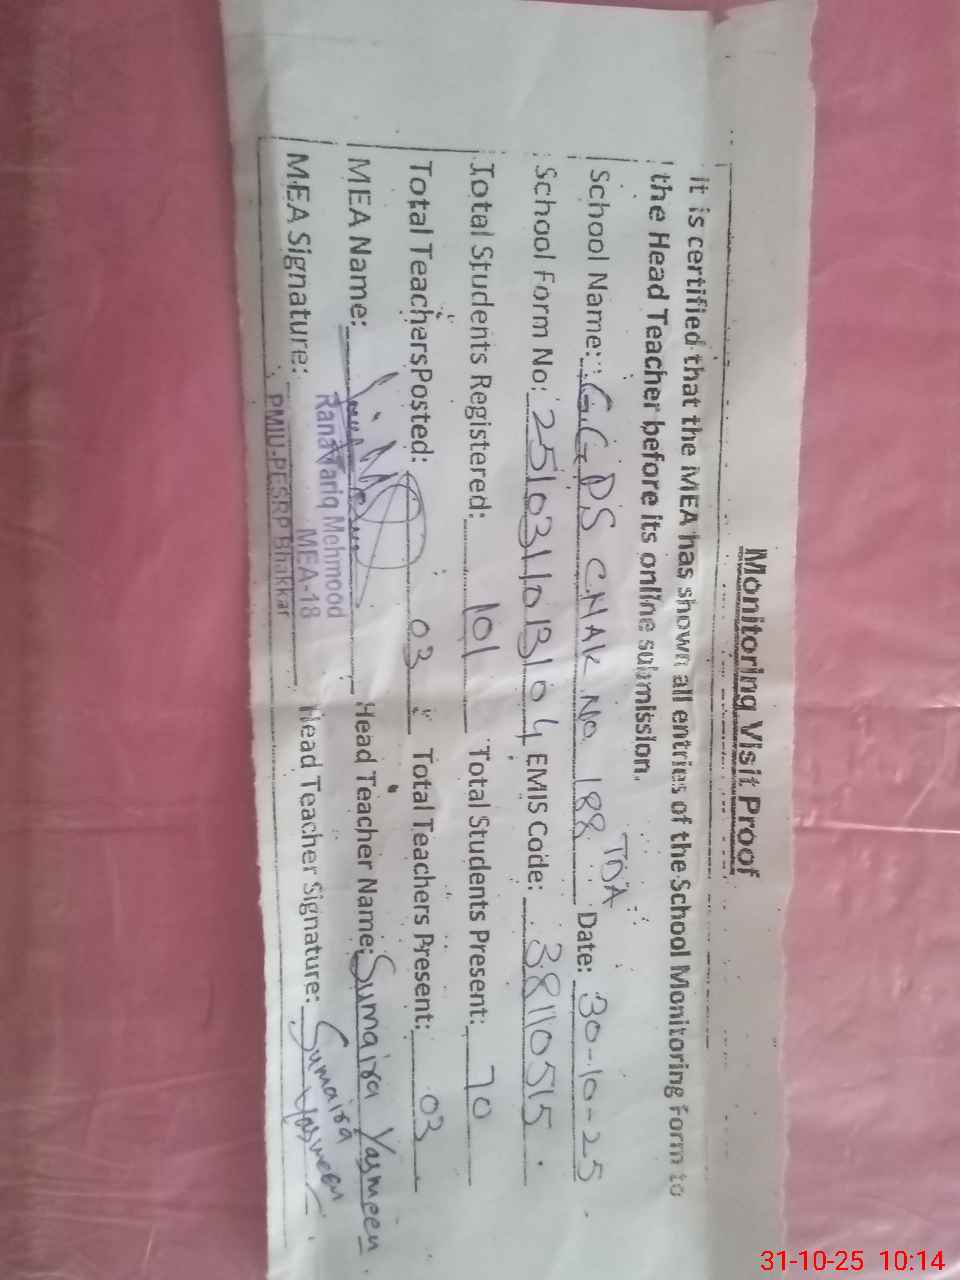 Monitoring Visit Proof
It is certified that the MEA has shown all entries of the School Monitoring Form to
the Head Teacher before its online submission.
School Name: G.G.P.S CHAK NO 188 TDA Date: 30-10-25
School Form No: 2510311013104 EMIS Code: 38110515
Total Students Registered: 101 Total Students Present: 70
Total Teachers Posted: 03 Total Teachers Present: 03
MEA Name: Head Teacher Name: Sumaira Yasmeen
MEA Signature: Head Teacher Signature: Sumaira Yasmeen
Rana Tariq Mehmood
MEA-18
PMIU-PESRP Bhakkar
31-10-25 10:14